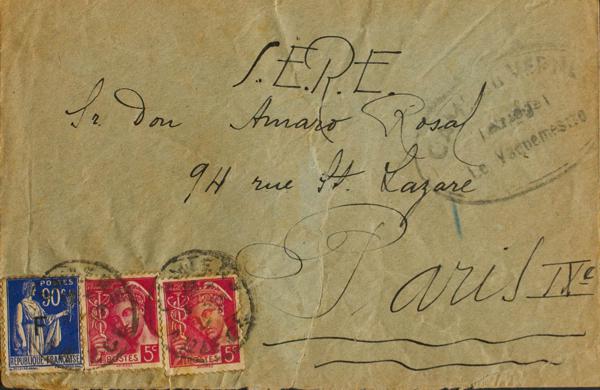 S.E.R.E.
Sr. Don Amaro Rosal
94 rue St. Lazare
Paris IXe
Le Vaguemestre
POSTES
90c
F
REPUBLIQUE FRANÇAISE
POSTES 5c
POSTES 5c